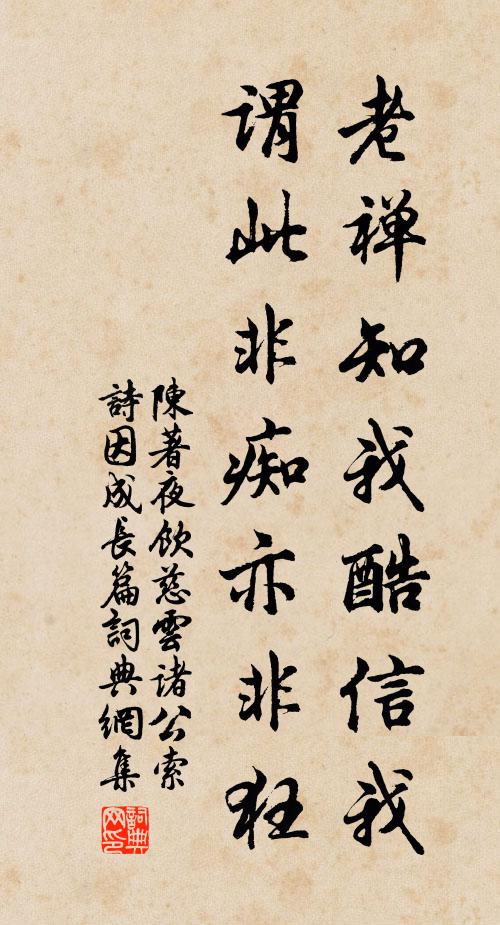 老禅知我酷信我
謂此非痴亦非狂
陳著夜飲慈雲諸公索
詩因成長篇詞典網集
詞典网印